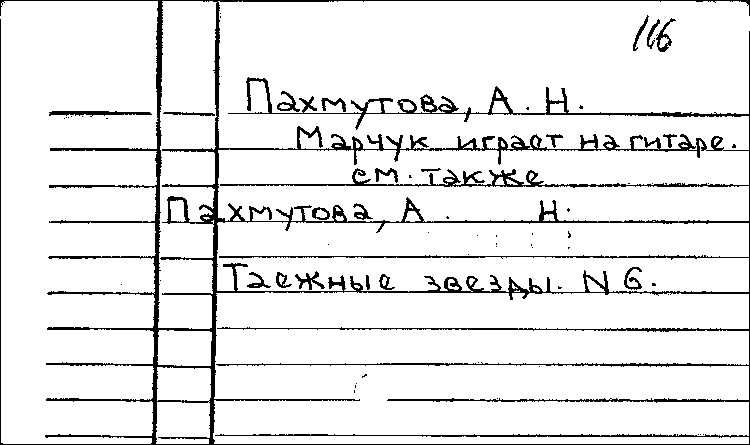 116
Пахмутова, А. Н.
Марчук играет на гитаре.
см. также
Пахмутова, А. Н.
Таежные звезды. N 6.